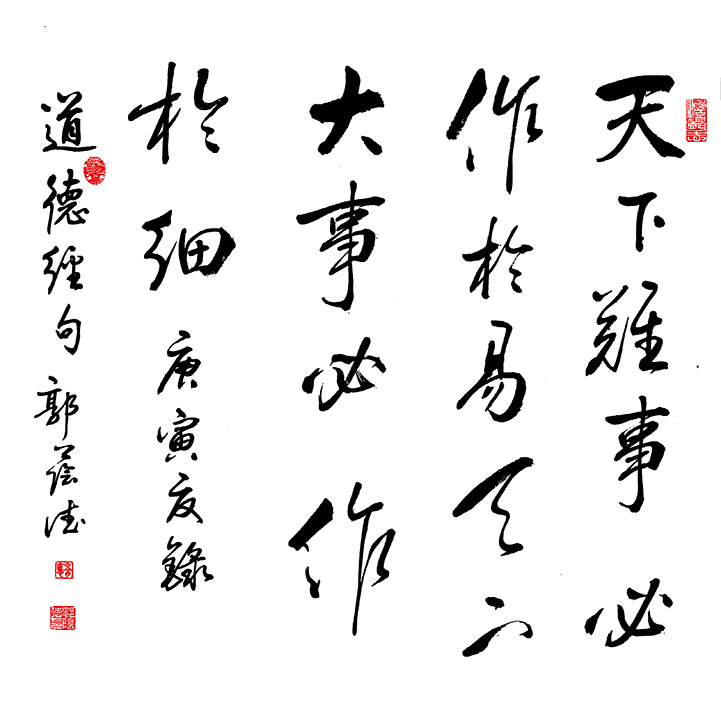 天下難事必
作於易天下
大事必作
於細庚寅夏錄
道德經句郭蔭德